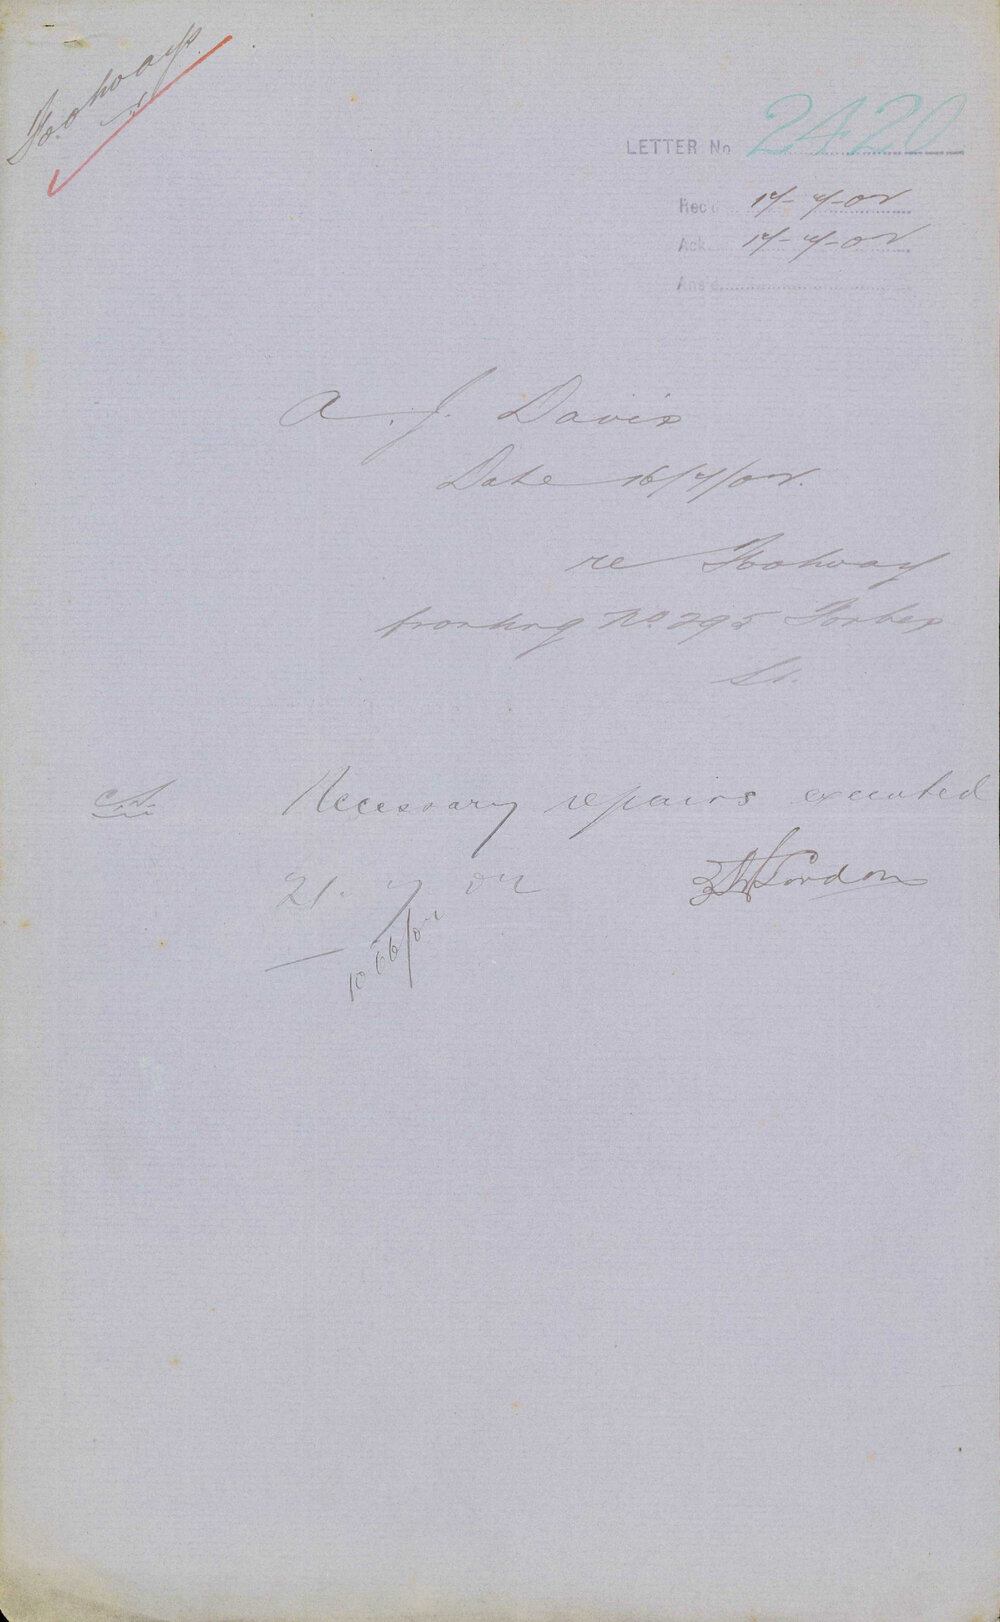 Footways
LETTER No 2420
Rec'd 17-7-02
Ack 17-7-02
Ans'd
A. J. Davis
Date 16/7/02.
re Footway
fronting No 295 Forbes
St.
C.S. Necessary repairs executed
21. 7. 02 Gordon
1066/02